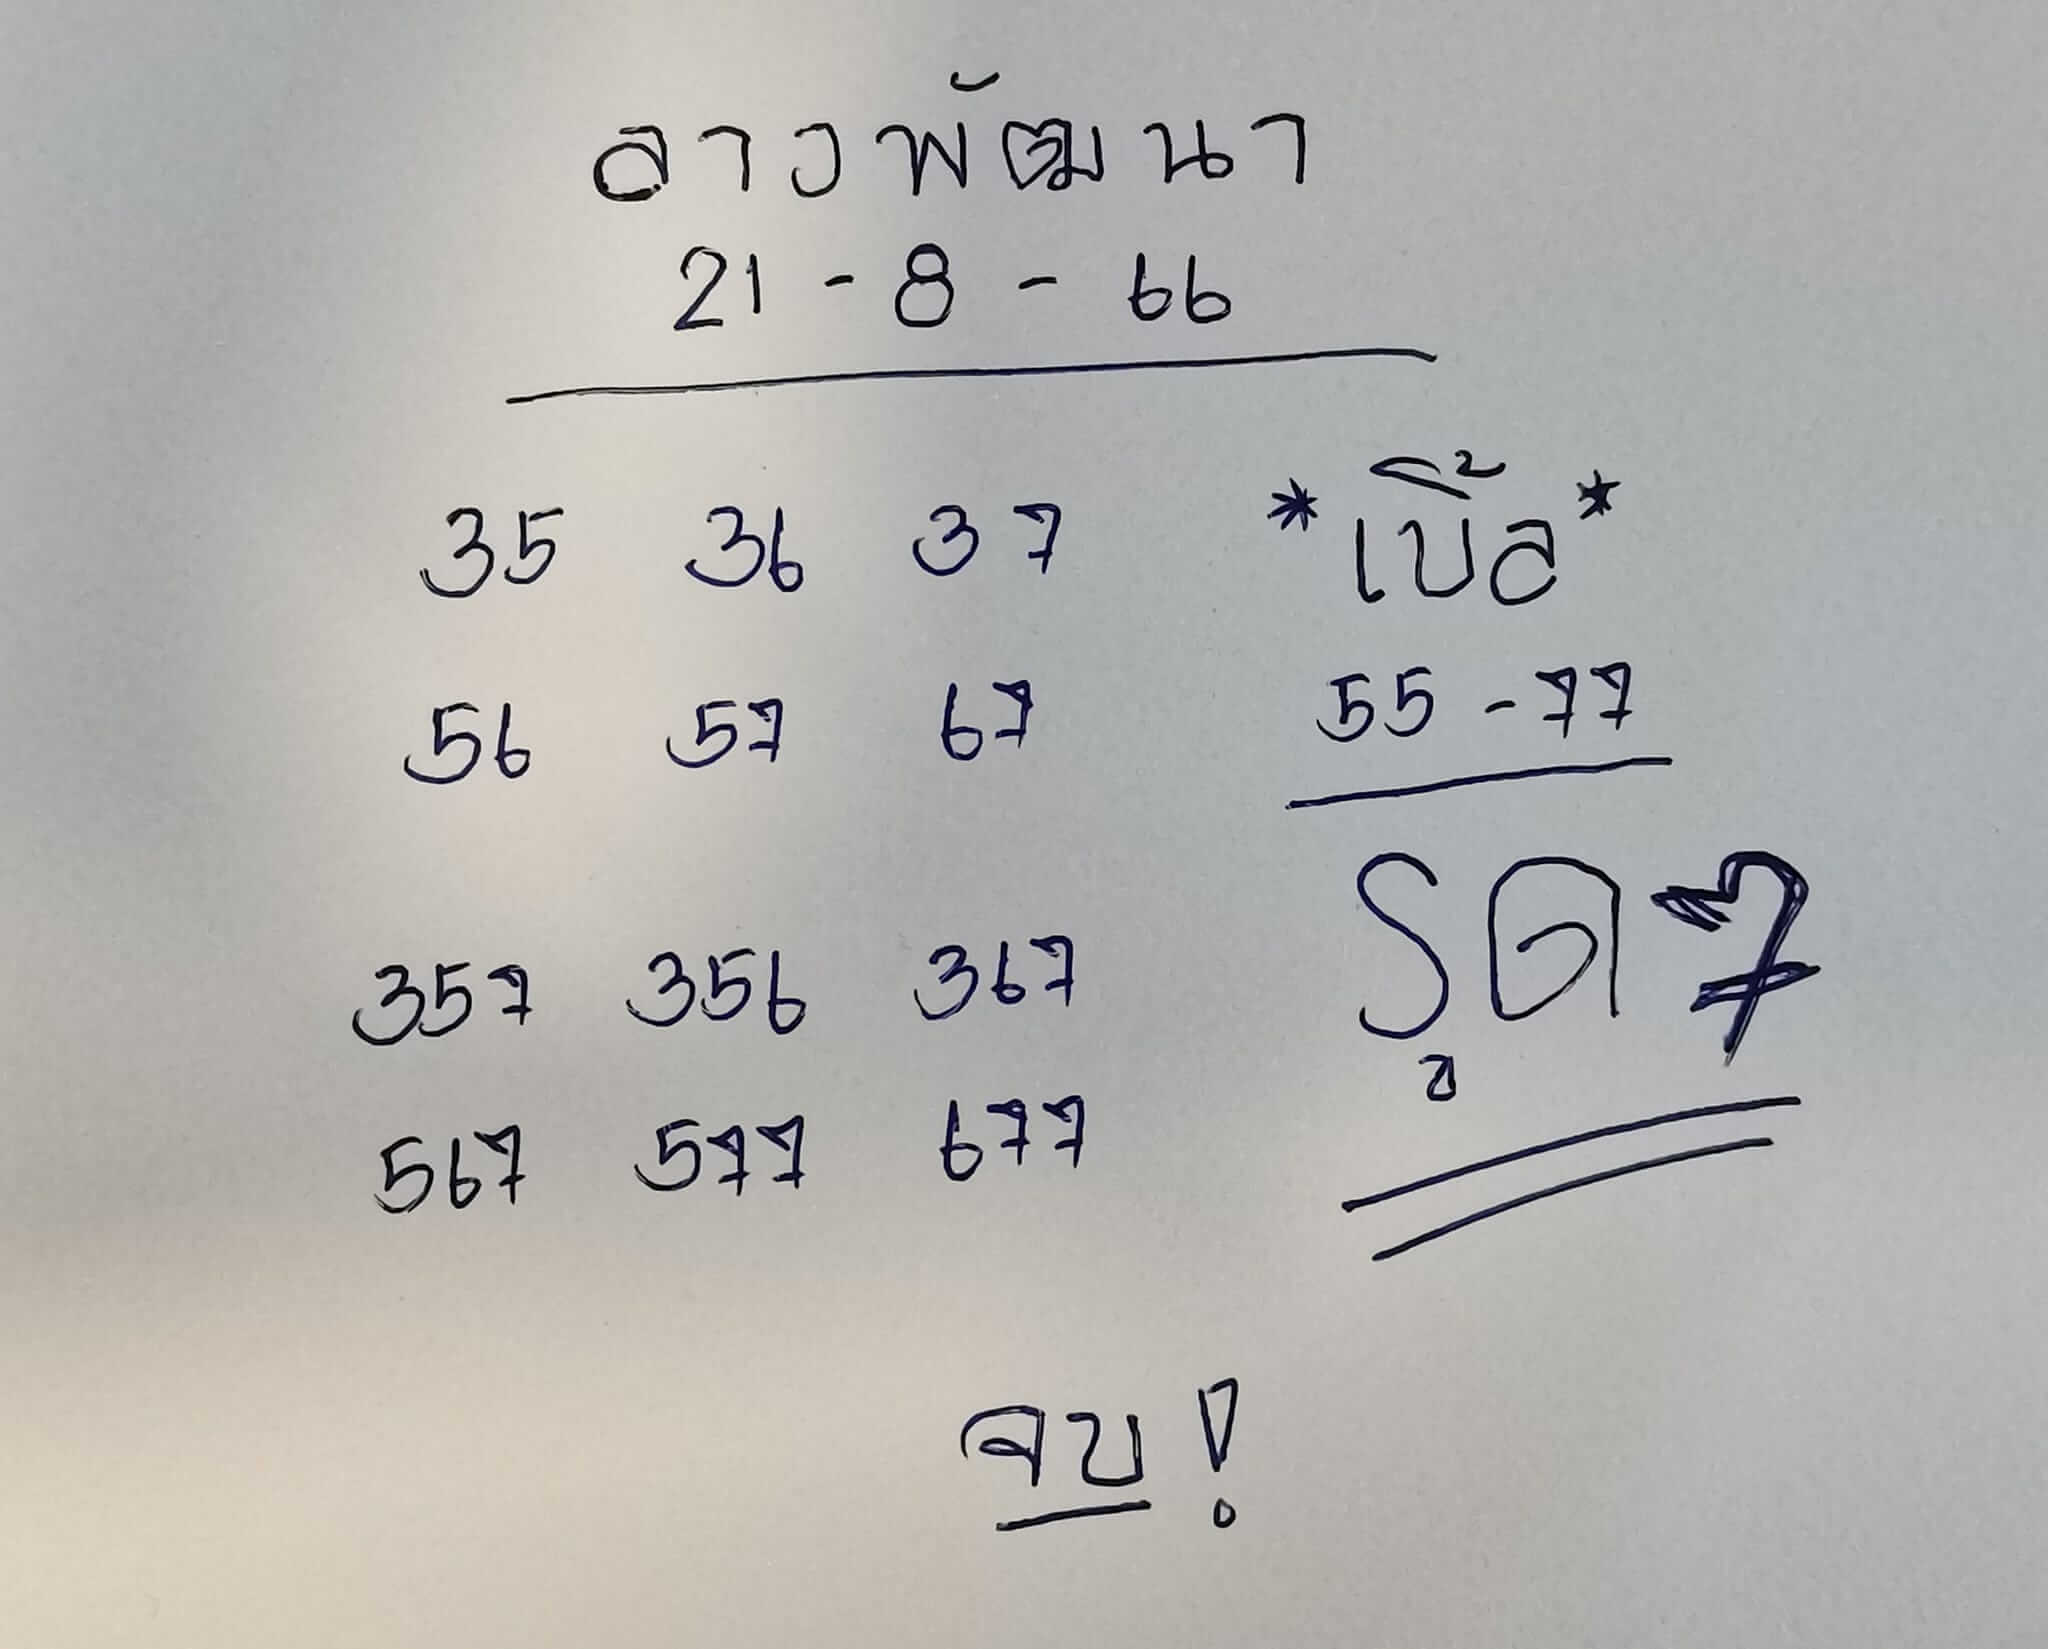 ลาวพัฒนา
21 - 8 - 66
35 36 37 *เบิ้ล*
56 57 67 55 - 77
357 356 367 รูด 7
567 577 677
จบ!